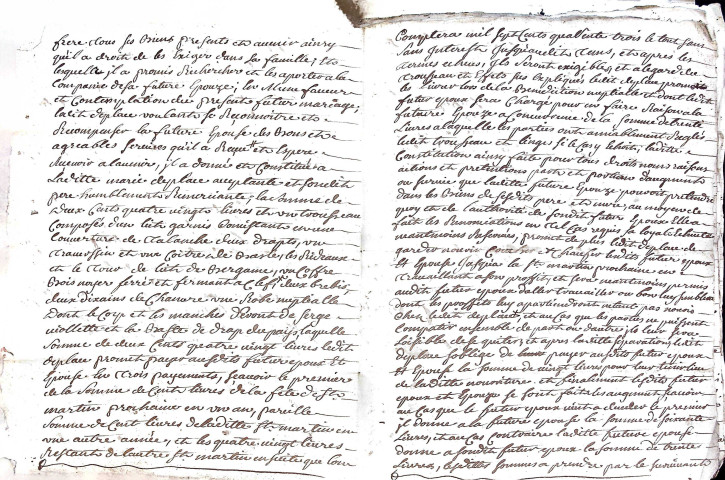 frere tous ses Biens presents et avenir ainsy
qu'il a droit de les exiger dans sa famille, Et
lesquelles, il a promis Rechercher et les aporter a la
Compaire de sa future Epouze; En Mesme faveur
et Contemplation du present futur mariage,
ledit deplace voulant se Reconnoitre et
Recompenser la future Epouse des Bons et
agreables services qu'il a Reçu et Espere
Recevoir a l'avenir, il a donné et Constitué a
Laditte marie deplace acceptante et sondit
pere humblement Remerciante, la somme de
Deux Cents quatre vingt Livres et un trousseau
Composés d'un lit garnis Consistant en une
Couverture de Catalanche deux draps, un
traversin et une Coitre de Basle, les Rideaux
et le tour de lit de Bergame, un Coffre
Bois noyer ferré et fermant a Clef, deux brebis
deux dixains de Chanvre une Robe nuptialle
Dont le Corp et les manches seront de serge
viollette et la Baste de drap du pais, laquelle
Somme de deux Cents quatre vingt Livres ledit
deplace promet payer ausdits future epoux Et
Epouse En trois payements, sçavoir le premier
de la Somme de Cent livres de la fete de St
martin prochaine en un an, pareille
Somme de Cent Livres de laditte St martin en
une autre année, et les quatre vingt livres
Restants de l'autre St martin ensuite que l'on
Comptera mil sept Cents quatante trois le tout sans
Sans interests jusqu'audits tems, et apres les
termes echeus, ils seront exigibles et a legard du
trousseau et Effets sus Expliqués ledit deplace promet
les Livrer lors de la Benediction nuptialle et dont ledit
futur epoux sera Chargé pour en faire Raison a la
future Epouze a Concurrence de la somme de trente
Livres a laquelle les parties ont amiablement Reglé
ledit trousseau et linges si le Cas y Echoit; laditte
Constitution ainsy faite pour tous droits noms raisons
actions et pretentions part et portion d'augments
ou survie que laditte future Epouze pouvoit pretendre
dans les Biens de sesdits pere et mere, au moyen de
quoy et de l'authorité de sondit futur Epoux Elle
fait les Renonciations en tel Cas requis sa loyale Echeute
neantmoins Reservée, promet de plus ledit deplace de
garder nourir Coucher et Chaufer lesdits futur epoux
et Epouse jusqu'a la St martin prochaine en
travaillant a son proffit, et sera neantmoins permis
audit futur epoux d'aller travailler ou bon luy semblera
dont les proffits luy apartiendront
Chez ledit deplace, et au Cas que les parties ne puissent
Compatir ensemble de part ou d'autre, il leur sera
Loisible de se quiter, et apres laditte separation, ledit
deplace s'oblige de payer ausdits futur epoux
et Epouse la Somme de vingt livres pour leur tenir lieu
de laditte nouriture, et finalement lesdits futur
epoux et Epouze se sont faits les augments sçavoir
au Cas que le futur epoux vint a deceder le premier
il donne a la future epouse la somme de soixante
Livres, et au Cas Contraire laditte future epouse
donne a sondit futur epoux la somme de trente
Livres, lesdittes sommes a prendre par le survivant